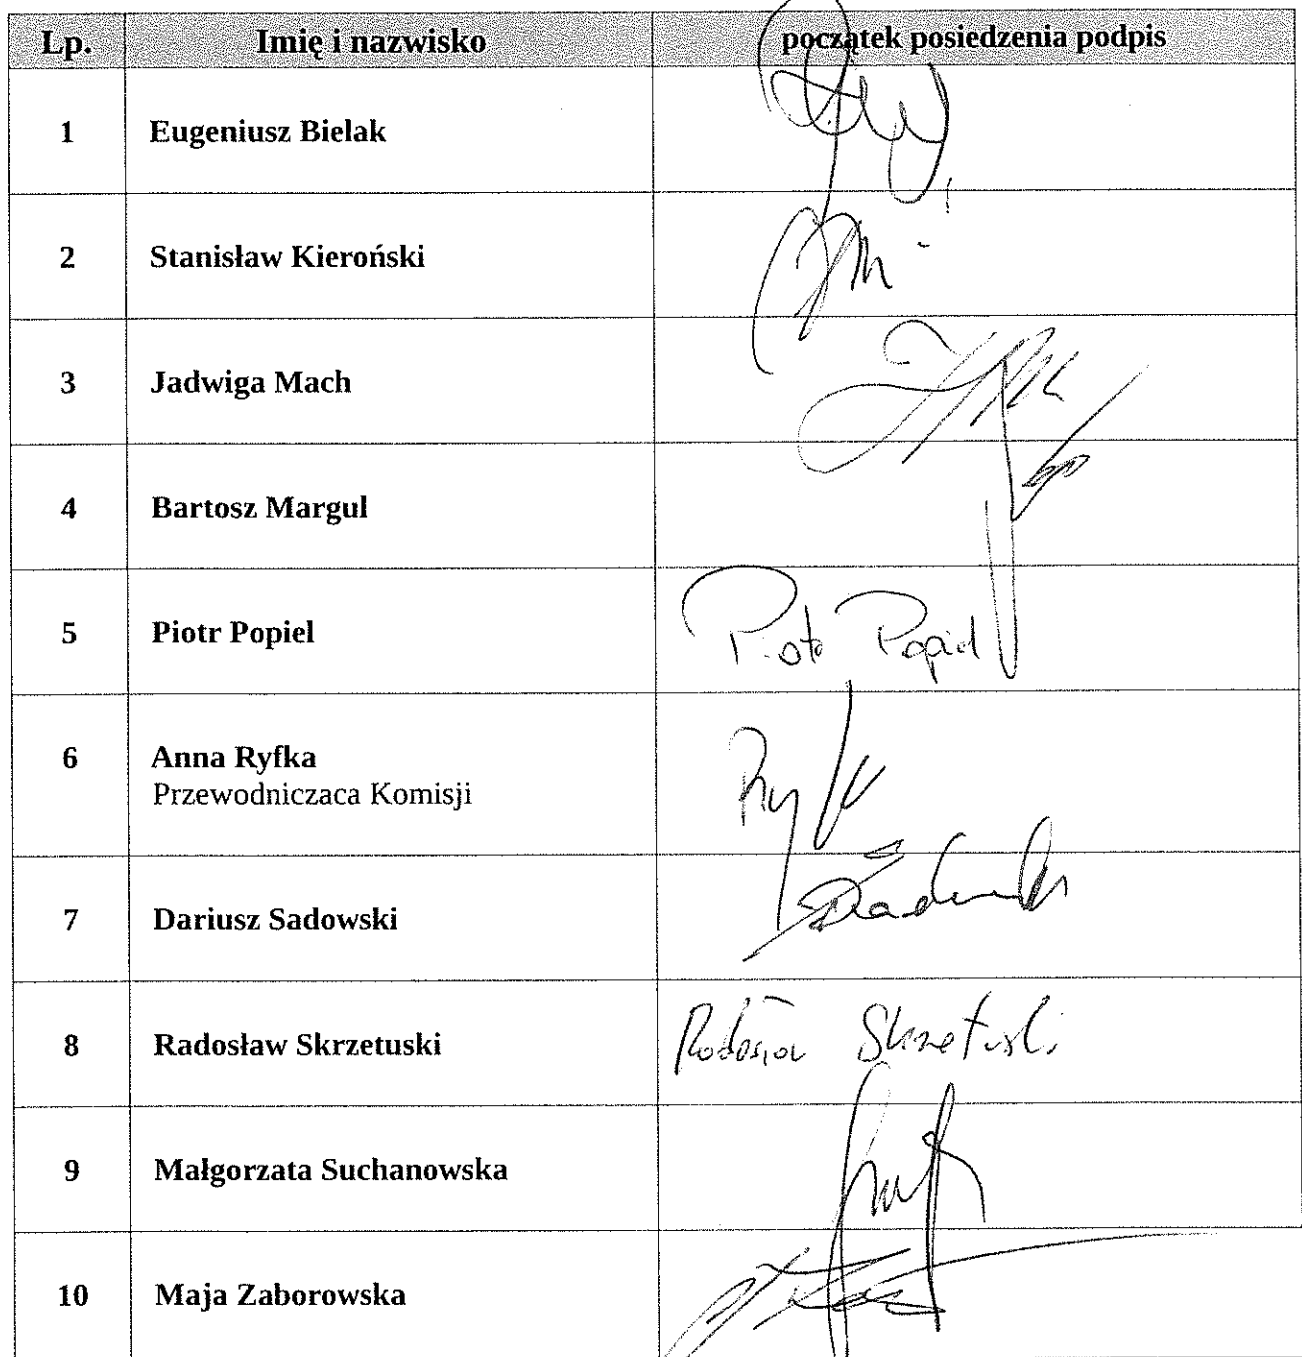 Lp. Imię i nazwisko początek posiedzenia podpis
1 Eugeniusz Bielak
2 Stanisław Kieroński
3 Jadwiga Mach
4 Bartosz Margul
5 Piotr Popiel Piotr Popiel
6 Anna Ryfka
Przewodniczaca Komisji
7 Dariusz Sadowski
8 Radosław Skrzetuski Radosław Skrzetuski
9 Małgorzata Suchanowska
10 Maja Zaborowska